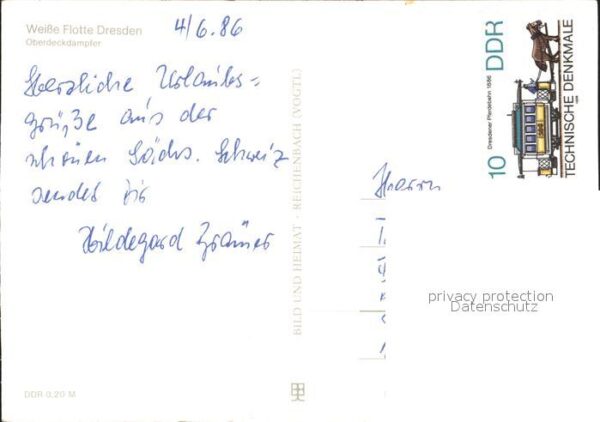 Weiße Flotte Dresden
Oberdeckdampfer
4/6.86
Herzliche Urlaubs=
grüße aus der
schönen Sächs. Schweiz
sendet Dir
Hildegard
BILD UND HEIMAT · REICHENBACH (VOGTL)
DDR 0,20 M
Herrn
10
Dresdener Pferdebahn 1886
DDR
TECHNISCHE DENKMALE
privacy protection
Datenschutz